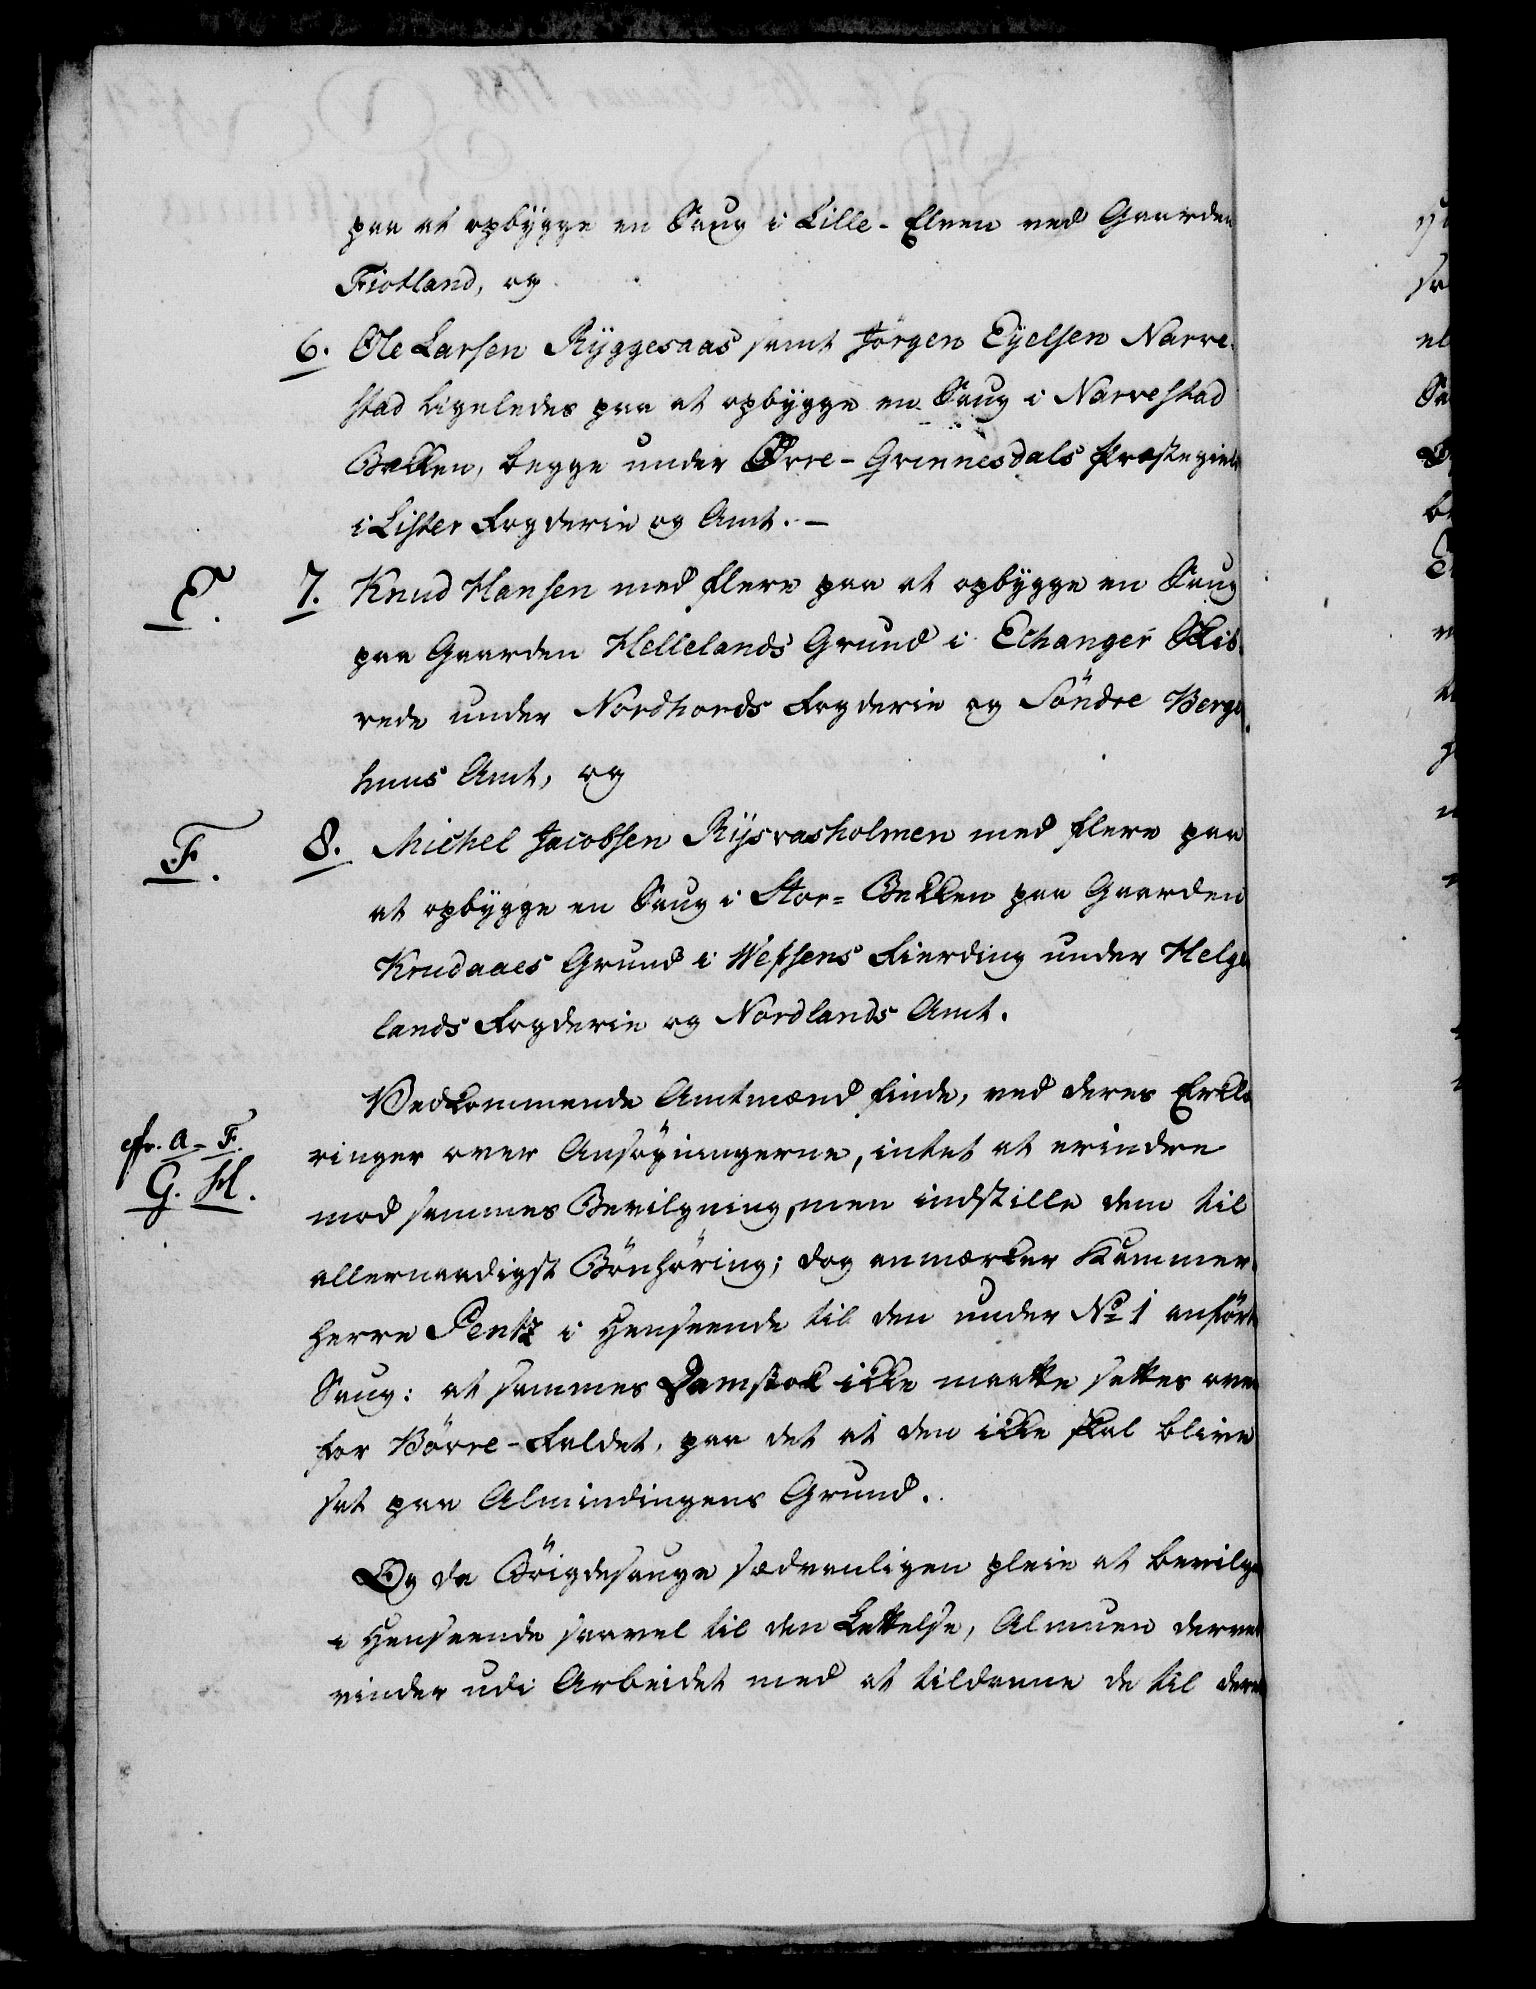 paa at opbygge en Saug i Lille-Elven ved Gaarden
Fiotland, og
6. Ole Larsen Ryggesaas samt Jörgen Eyelsen Narve-
stad ligeledes paa at opbygge en Saug i Narvestad
Bækken, begge under Øvre-Qvinnesdals Præstegield
i Lister Fogderie og Amt. –
E. 7. Knud Hansen med flere paa at opbygge en Saug
paa Gaarden Hellelands Grund i Echanger Skib-
rede under Nordhords Fogderie og Söndre Berge-
huus Amt, og
F. 8. Michel Jacobsen Rysvasholmen med flere paa
at opbygge en Saug i Stor=Bekken paa Gaarden
Krudaaes Grund i Wefsens Fierding under Helge-
lands Fogderie og Nordlands Amt.
Vedkommende Amtmænd finde, ved deres Erklæ-
cfr. A-F. ringer over Ansøgningerne, intet at erindre
G. H. mod sammes Bevilgning, men indstille dem til
allernaadigst Bönhöring; dog anmærker Kammer-
herre Pentz i Henseende til den under No 1 anförte
Saug: at sammes Damstok ikke maatte settes oven
for Börre-Faldet, paa det at den ikke skal blive
sat paa Almindingens Grund.
Og da Böigdesauge sædvanligen pleie at bevilges
i Henseende saavel til den Lettelse, Almuen derved
vinder udi Arbeidet med at tildanne de til deres